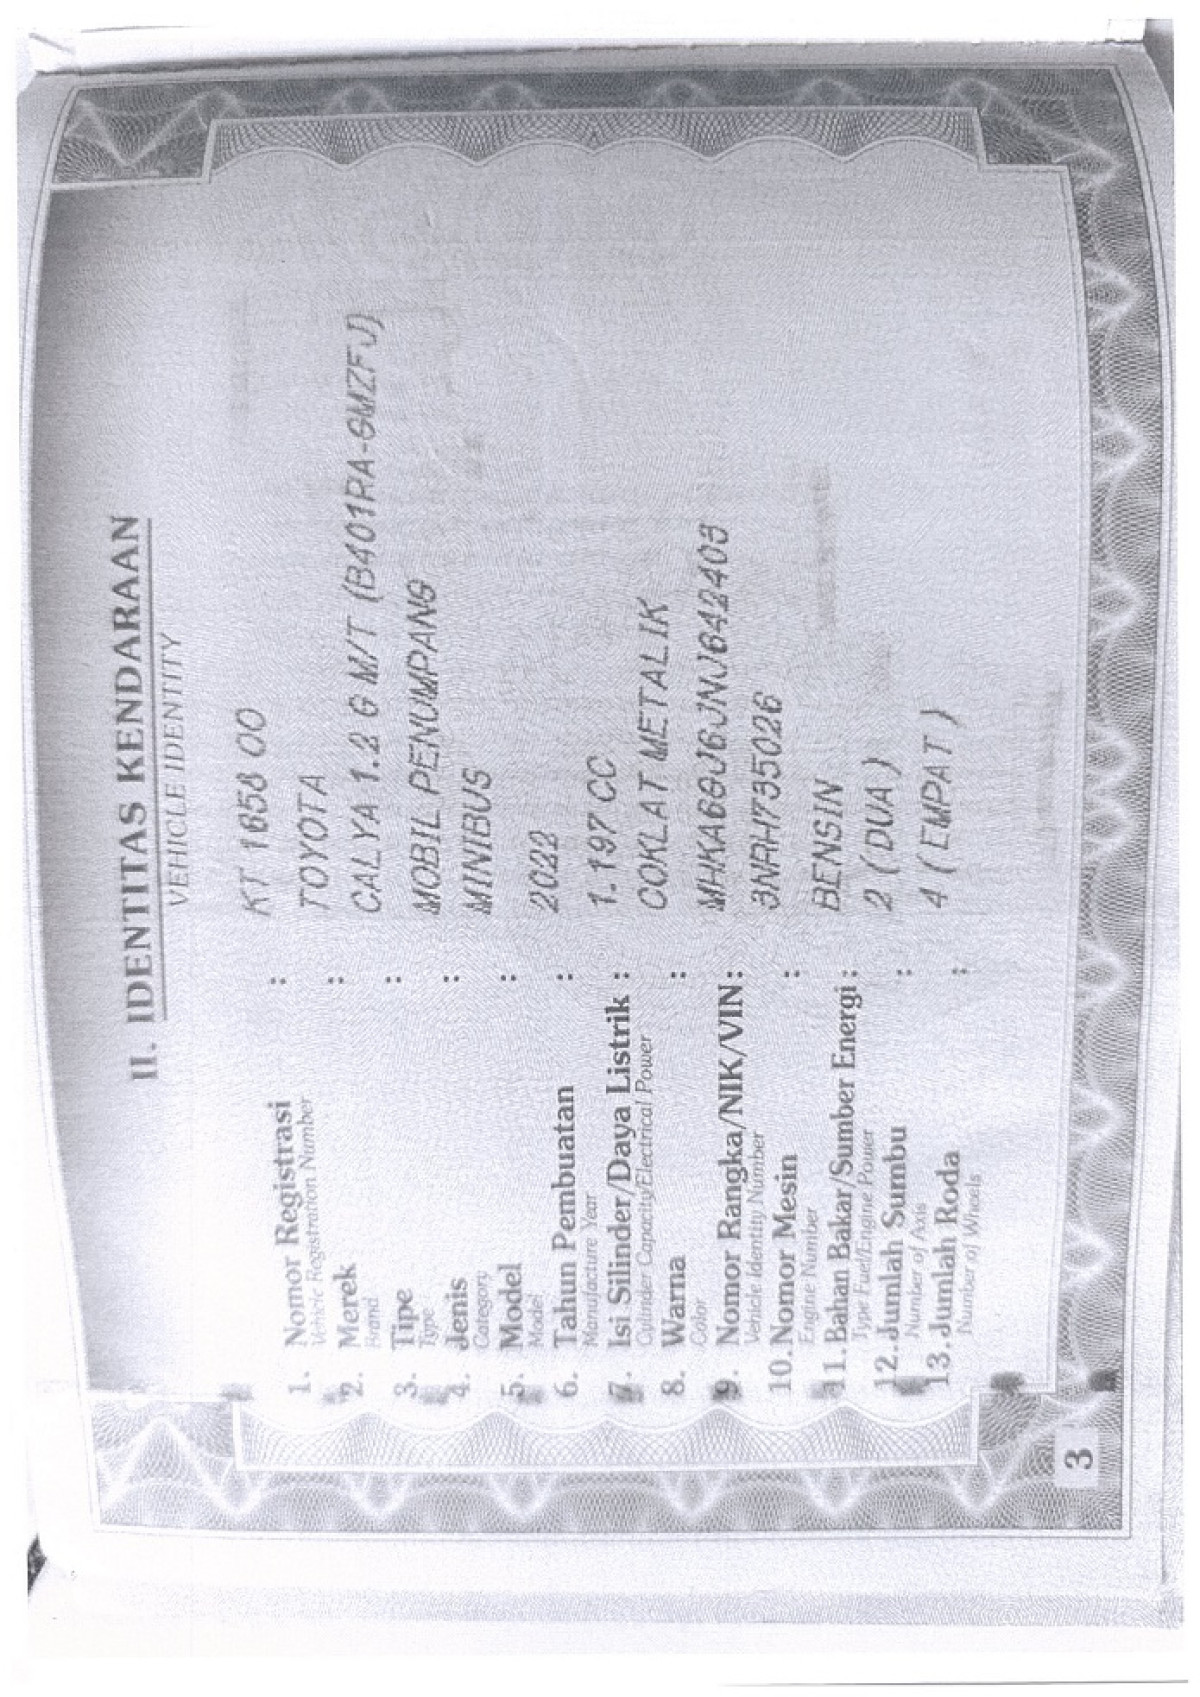 II. IDENTITAS KENDARAAN
VEHICLE IDENTITY
1. Nomor Registrasi :
Vehicle Registration Number
2. Merek : TOYOTA
Brand
3. Tipe : CALYA 1.2 G M/T (B401RA-GMZFJ)
Type
4. Jenis : MOBIL PENUMPANG
Category
5. Model : MINIBUS
Model
6. Tahun Pembuatan : 2022
Manufacture Year
7. Isi Silinder/Daya Listrik : 1.197 CC
Cylinder Capacity/Electrical Power
8. Warna : COKLAT METALIK
Color
9. Nomor Rangka/NIK/VIN : MHKA6GJ6JNJ642403
Vehicle Identity Number
10. Nomor Mesin : 3NRH735026
Engine Number
11. Bahan Bakar/Sumber Energi : BENSIN
Type Fuel/Engine Power
12. Jumlah Sumbu : 2 (DUA)
Number of Axis
13. Jumlah Roda : 4 (EMPAT)
Number of Wheels
3